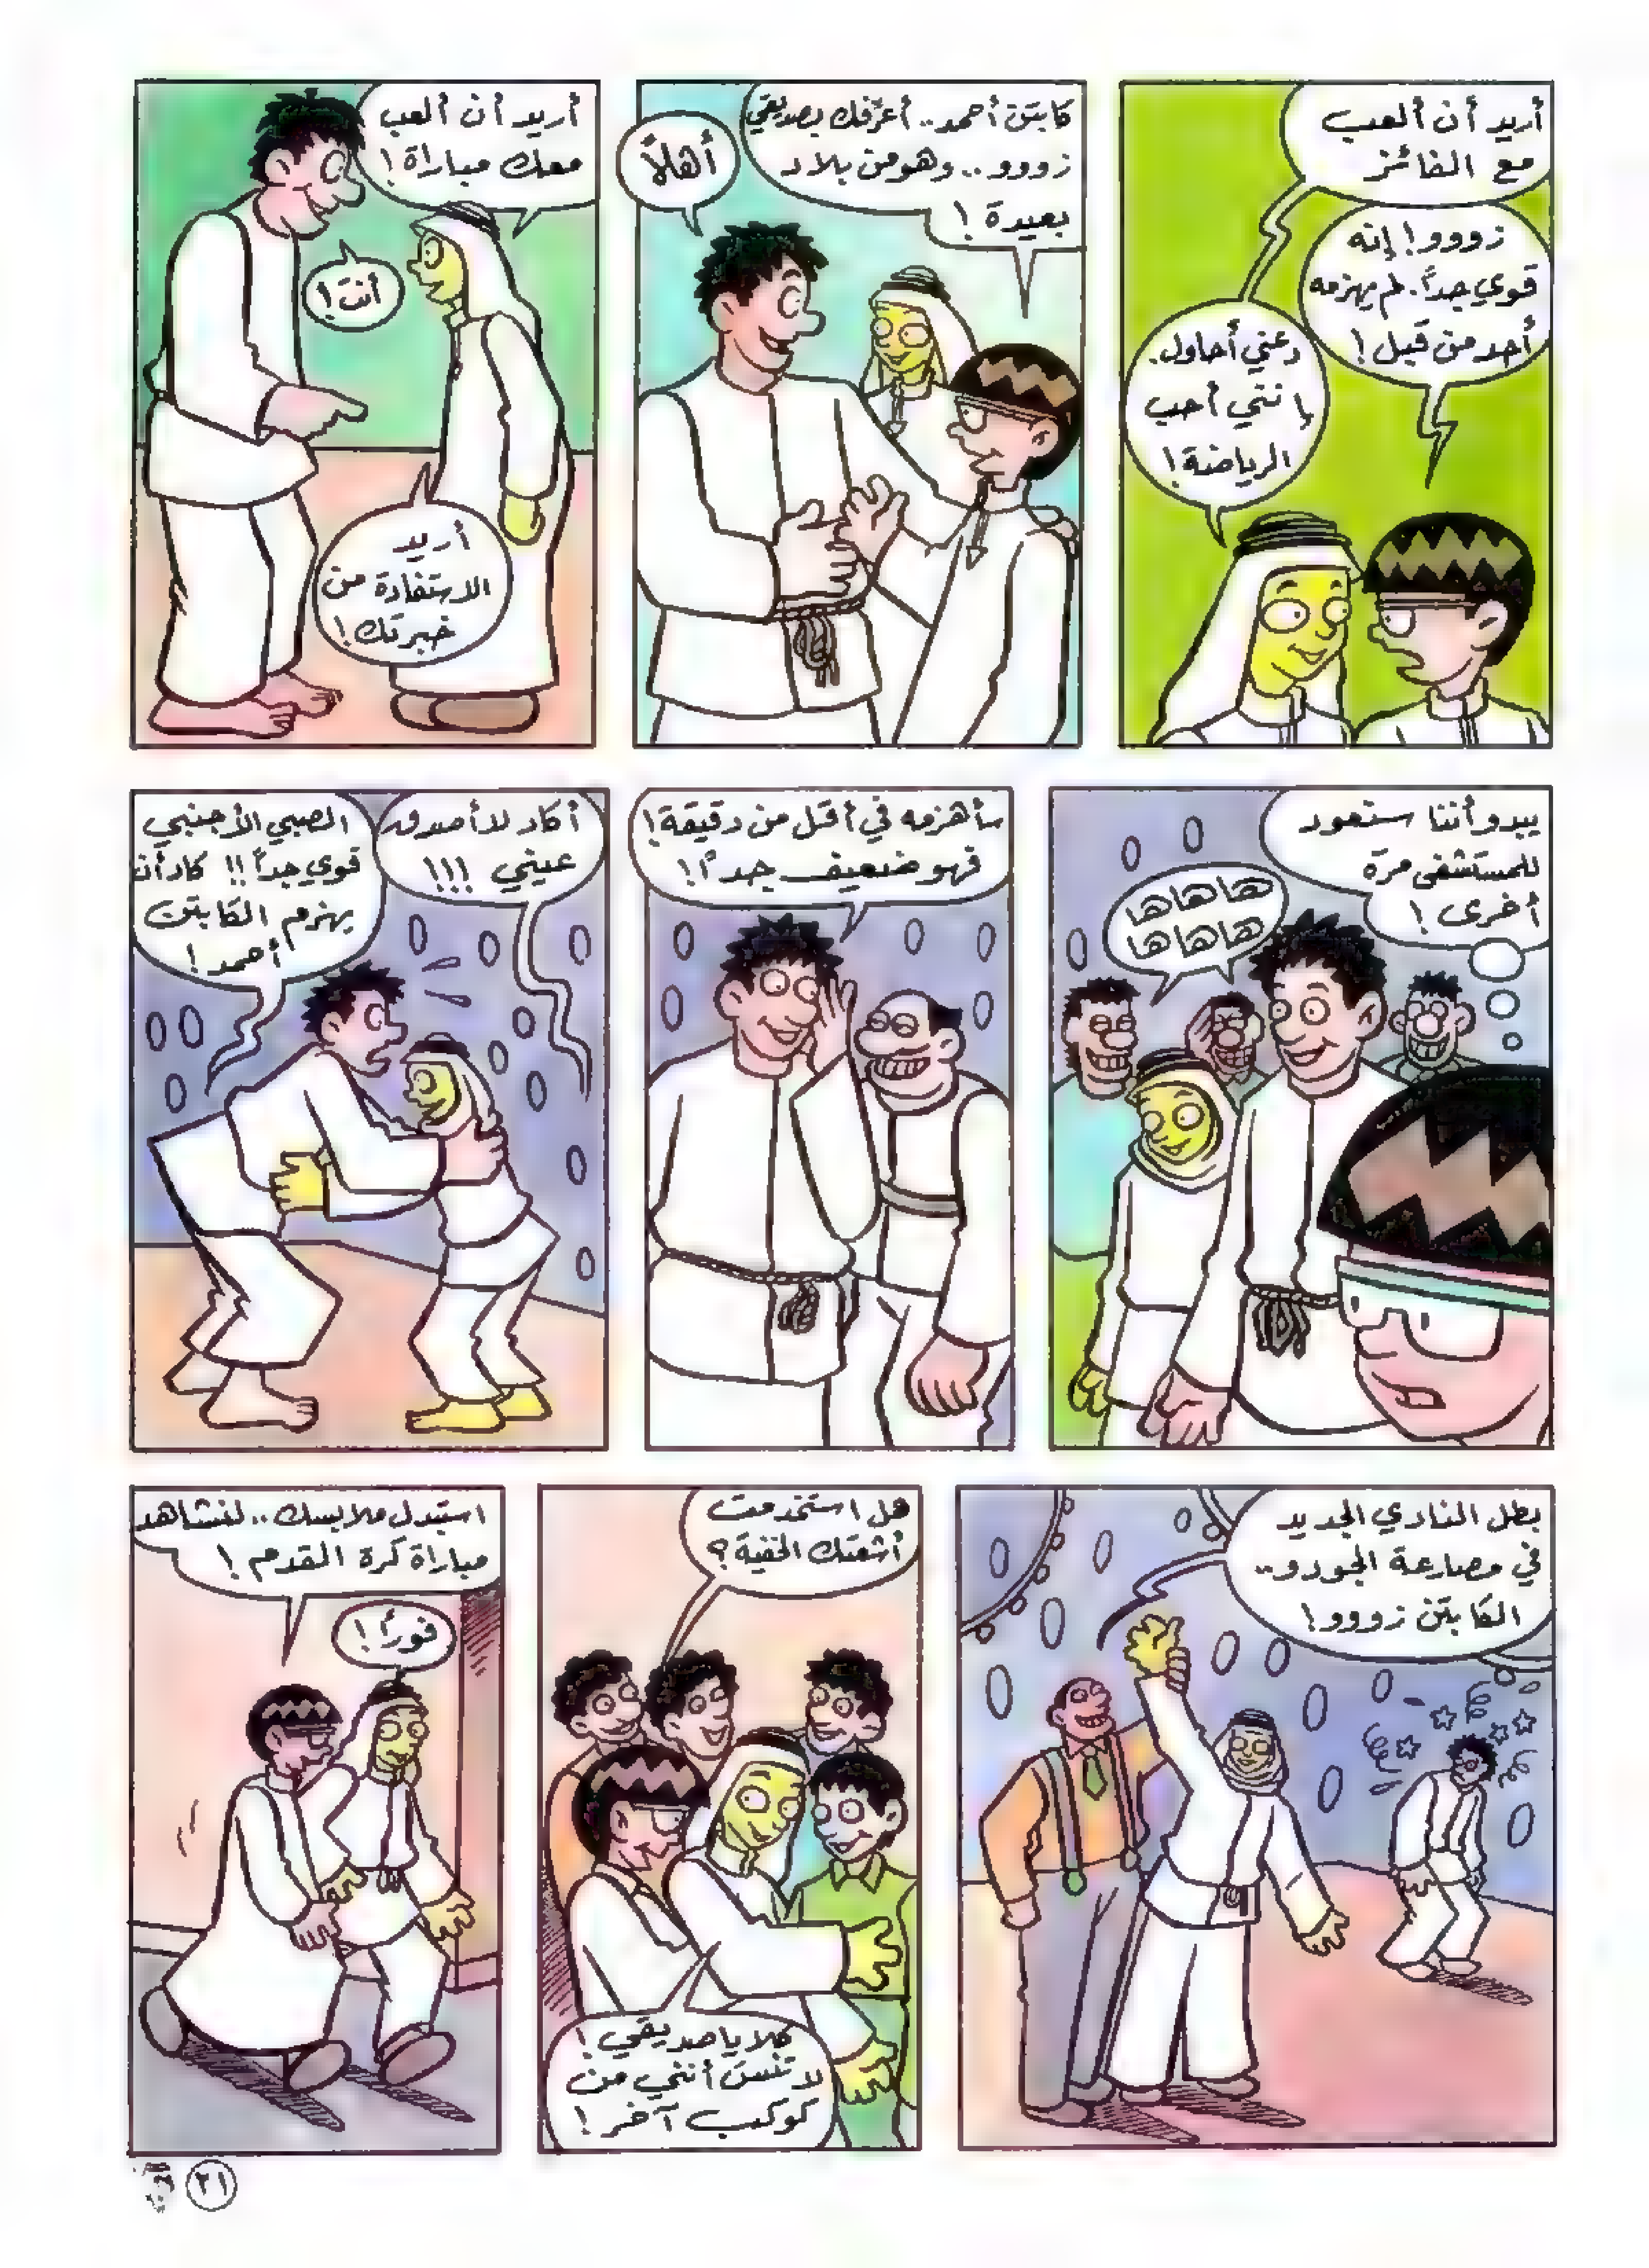 أريد أن ألعب
مع الفائز
زووو! إنه
قوي جداً. لم يهزمه
أحد من قبل!
دعني أحاول.
إنني أحب
الرياضة!
كابتن أحمد.. أعرّفك بصديقي
زووو.. وهو من بلاد
بعيدة!
أهلاً
أريد أن ألعب
معك مباراة!
أنت!
أريد
الاستفادة من
خبرتك!
يبدو أننا سنعود
للمستشفى مرة
أخرى!
هاهاها
هاهاها
سأهزمه في أقل من دقيقة!
فهو ضعيف جداً!
أكاد لا أصدق
عيني !!!
الصبي الأجنبي
قوي جداً!! كاد أن
يهزم الكابتن
أحمد!
بطل النادي الجديد
في مصارعة الجودو..
الكابتن زووو!
هل استخدمت
أشعتك الخفية؟
كلا يا صديقي!
لا تنسَ أنني من
كوكب آخر!
استبدل ملابسك.. لنشاهد
مباراة كرة القدم!
فوراً!
٢١